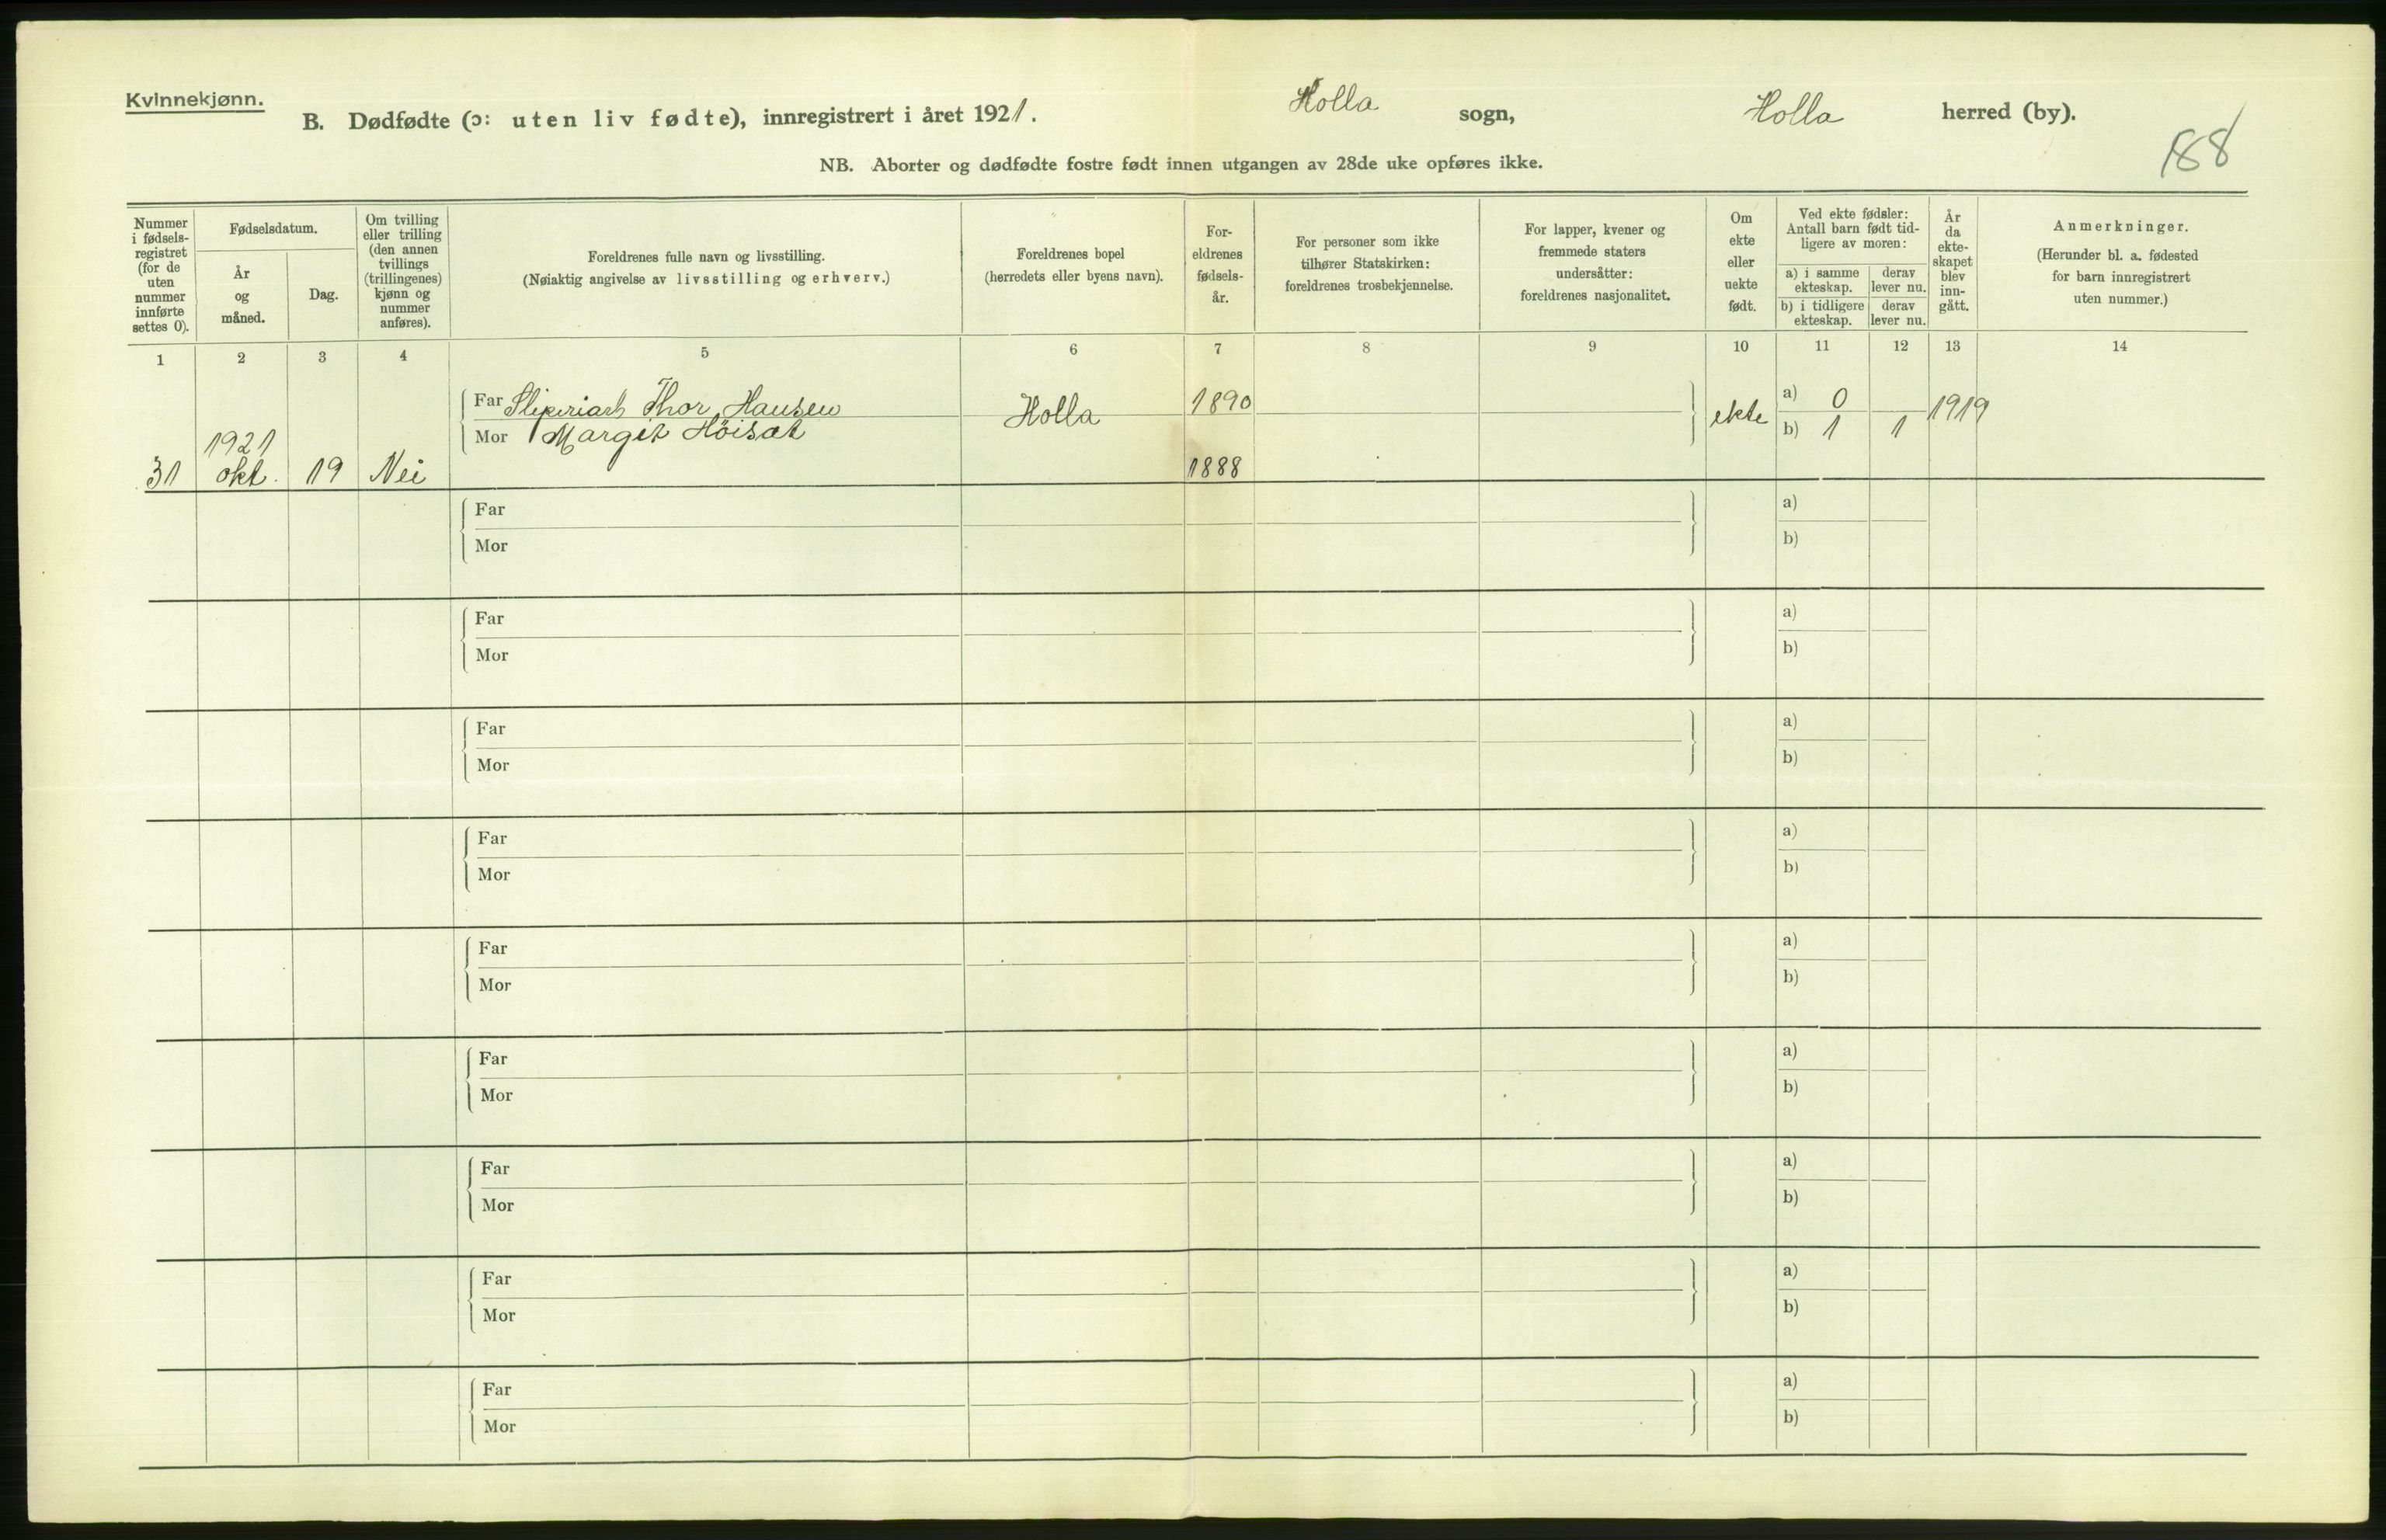 Kvinnekjønn.
B. Dødfødte (ɔ: uten liv fødte), innregistrert i året 1921. Holla sogn, Holla herred (by).
188
NB. Aborter og dødfødte fostre født innen utgangen av 28de uke opføres ikke.
Nummer
i fødsels-
registret
(for de
uten
nummer
innførte
settes 0).
Fødselsdatum.
År
og
måned.
Dag.
Om tvilling
eller trilling
(den annen
tvillings
(trillingenes)
kjønn og
nummer
anføres).
Foreldrenes fulle navn og livsstilling.
(Nøiaktig angivelse av livsstilling og erhverv.)
Foreldrenes bopel
(herredets eller byens navn).
For-
eldrenes
fødsels-
år.
For personer som ikke
tilhører Statskirken:
foreldrenes trosbekjennelse.
For lapper, kvener og
fremmede staters
undersåtter:
foreldrenes nasjonalitet.
Om
ekte
eller
uekte
født.
Ved ekte fødsler:
Antall barn født tid-
ligere av moren:
a) i samme
ekteskap.
derav
lever nu.
b) i tidligere
ekteskap.
derav
lever nu.
År
da
ekte-
skapet
blev
inn-
gått.
Anmerkninger.
(Herunder bl. a. fødested
for barn innregistrert
uten nummer.)
1 2 3 4 5 6 7 8 9 10 11 12 13 14
Far Sliperiarb Thor Hansen Holla 1890 ekte a) 0 1919
Mor Margit Höisæt b) 1 1
1921
31 okt. 19 Nei 1888
Far a)
Mor b)
Far a)
Mor b)
Far a)
Mor b)
Far a)
Mor b)
Far a)
Mor b)
Far a)
Mor b)
Far a)
Mor b)
Far a)
Mor b)
Far a)
Mor b)